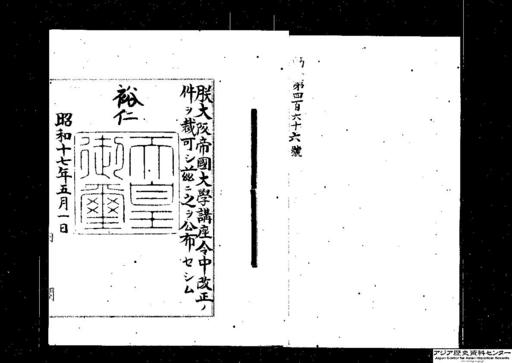 第四百六十六號
朕大阪帝國大學講座令中改正ノ
件ヲ裁可シ茲ニ之ヲ公布セシム
裕仁
天皇
御璽
昭和十七年五月一日
アジア歴史資料センター
Japan Center for Asian Historical Records